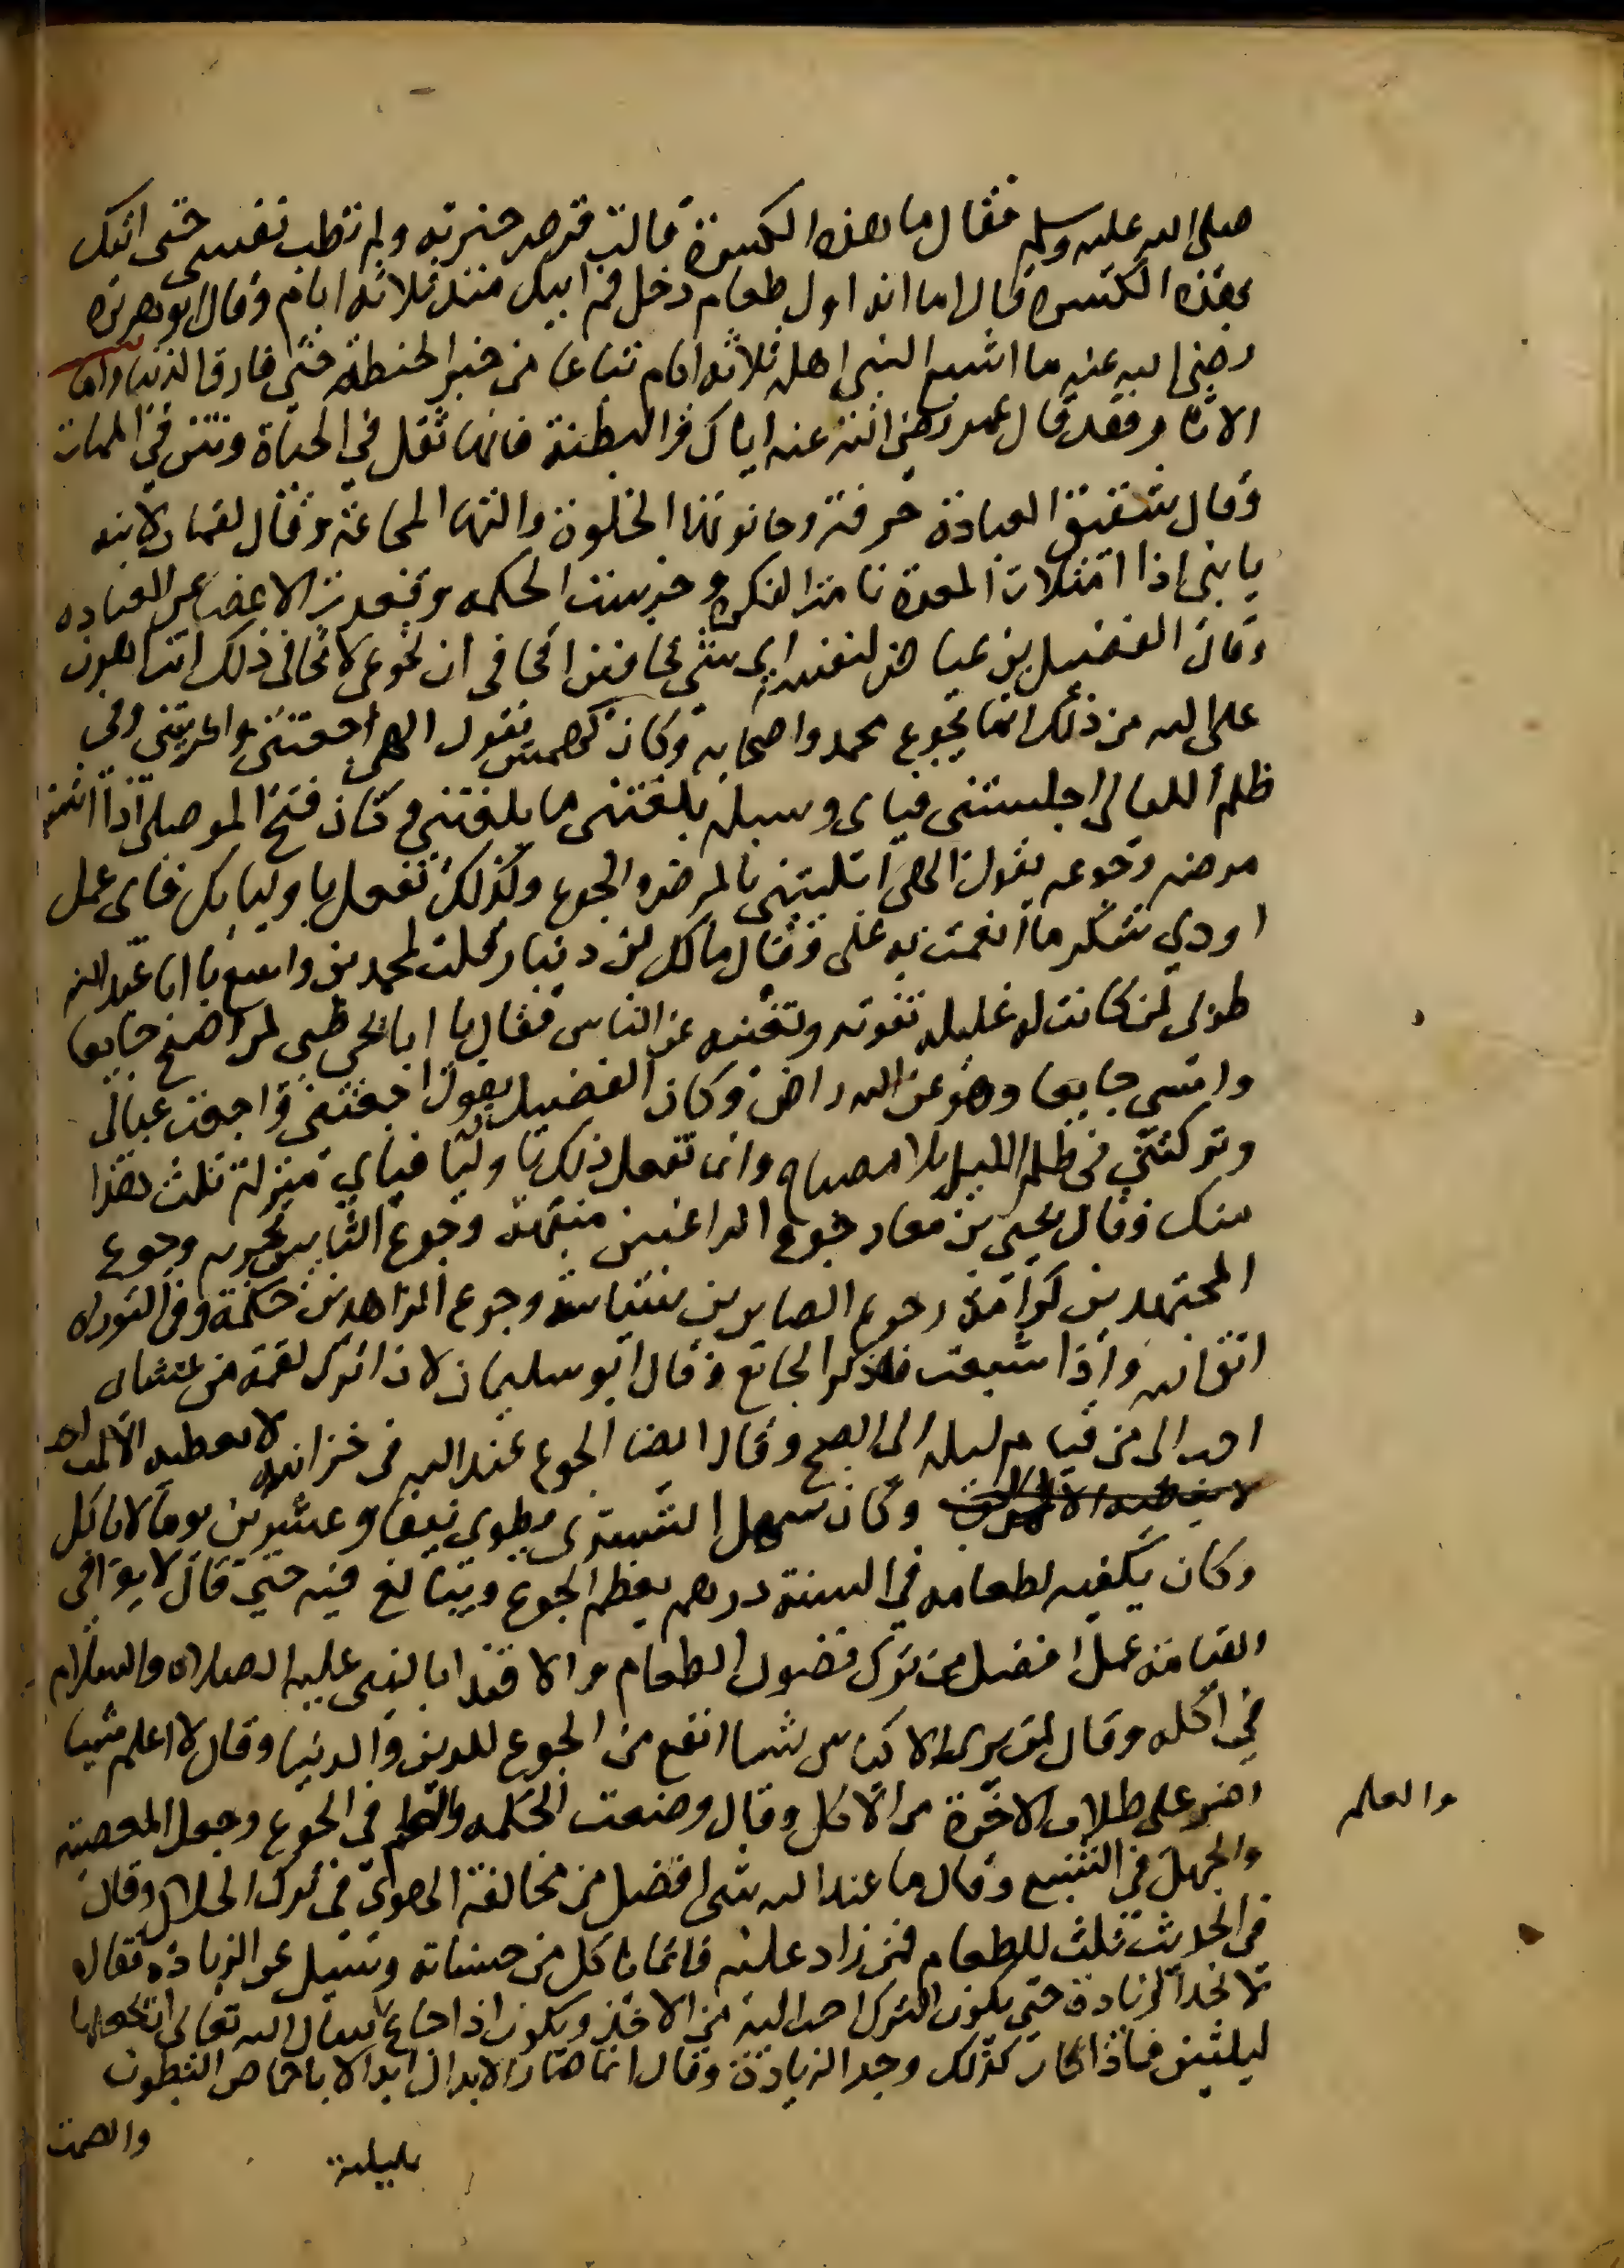 صلى الله عليه وسلم فقال ما هذه الكسرة قالت قرص خبزته ولم تطب نفسي حتى اتيك
بهذه الكسره فقال اما انه اول طعام دخل فم ابيك منذ ثلاثه ايام وقال ابو هريره
رضي الله عنه ما اشبع النبي اهله ثلاثه ايام تباعا من خبز الحنطة حتى فارق الدنيا واما
الاثار فقد قال عمر رضي الله عنه اياكم والبطنة فانها ثقل في الحياة ونتن في الممات
وقال شقيق العبادة حرفة وحانوتها الخلوة والتها المجاعة وقال لقمان لابنه
يا بني اذا امتلات المعدة نامت الفكرة وخرست الحكمه وقعدت الاعضا عن العباده
وقال الفضيل بن عياض لنفسه اي شي تخافين اتخافي ان تجوعي لا تخافي ذلك انت اهون
على الله من ذلك انما يجوع محمد واصحابه وكان كهمس يقول الهي اجعتني واعريتني وفي
ظلم الليالي اجلستني فباي وسيله بلغتني ما بلغتني وكان فتح الموصلي اذا اشتد
مرضه وجوعه يقول الهي ابتليتني بالمرض والجوع وكذلك تفعل باوليايك فباي عمل
اودي شكر ما انعمت به علي وقال مالك بن دينار قلت لمحمد بن واسع يا ابا عبد الله
طوبى لمن كانت له غليله تقوته وتغنيه عن الناس فقال يا ابا يحيى طوبى لمن اصبح جايعا
وامسى جايعا وهو عن الله راض وكان الفضيل يقول اجعتني واجعت عيالي
وتركتني في ظلم الليل بلا مصباح وانما تفعل ذلك باوليا فباي منزلة نلت هذا
منك وقال يحيى بن معاذ جوع الراغبين منبهة وجوع التايبين تجربه وجوع
المجتهدين كرامة وجوع الصابرين سياسة وجوع الزاهدين حكمة وفي التوراه
اتق الله واذا شبعت فاذكر الجائع وقال ابو سليمان لان اترك لقمة من عشاي
احب الي من قيام ليله الى الصبح وقال ايضا الجوع عند الله في خزانه لا يعطيه الا لمن احبه
وكان سهل التستري يطوي نيفا وعشرين يوما لا ياكل
وكان يكفيه لطعامه في السنة درهم يعظم الجوع ويبالغ فيه حتى قال لا يوافي
القيامة عمل افضل من ترك فضول الطعام والاقتدا بالنبي عليه الصلاه والسلام
في اكله وقال لم ير الاكياس شيا انفع من الجوع للدين والدنيا وقال لا اعلم شيا
اضر على طلاب الاخرة من الاكل وقال وضعت الحكمه والعلم في الجوع وجعل المعصية
والعلم
والجهل في الشبع وقال ما عبد الله شي افضل من مخالفة الهوى في ترك الحلال وقال
في الحديث ثلث للطعام فمن زاد عليه فانما ياكل من حسناته وسئل عن الزيادة فقال
لا يجد الزيادة حتى يكون الترك احب اليه من الاخذ ويكون اذا جاع يسال الله تعالى ان يجعلها
ليلتين فاذا كان كذلك وجد الزيادة وقال انما صار الابدال ابدالا باخماص البطون
بليلة
والصمت